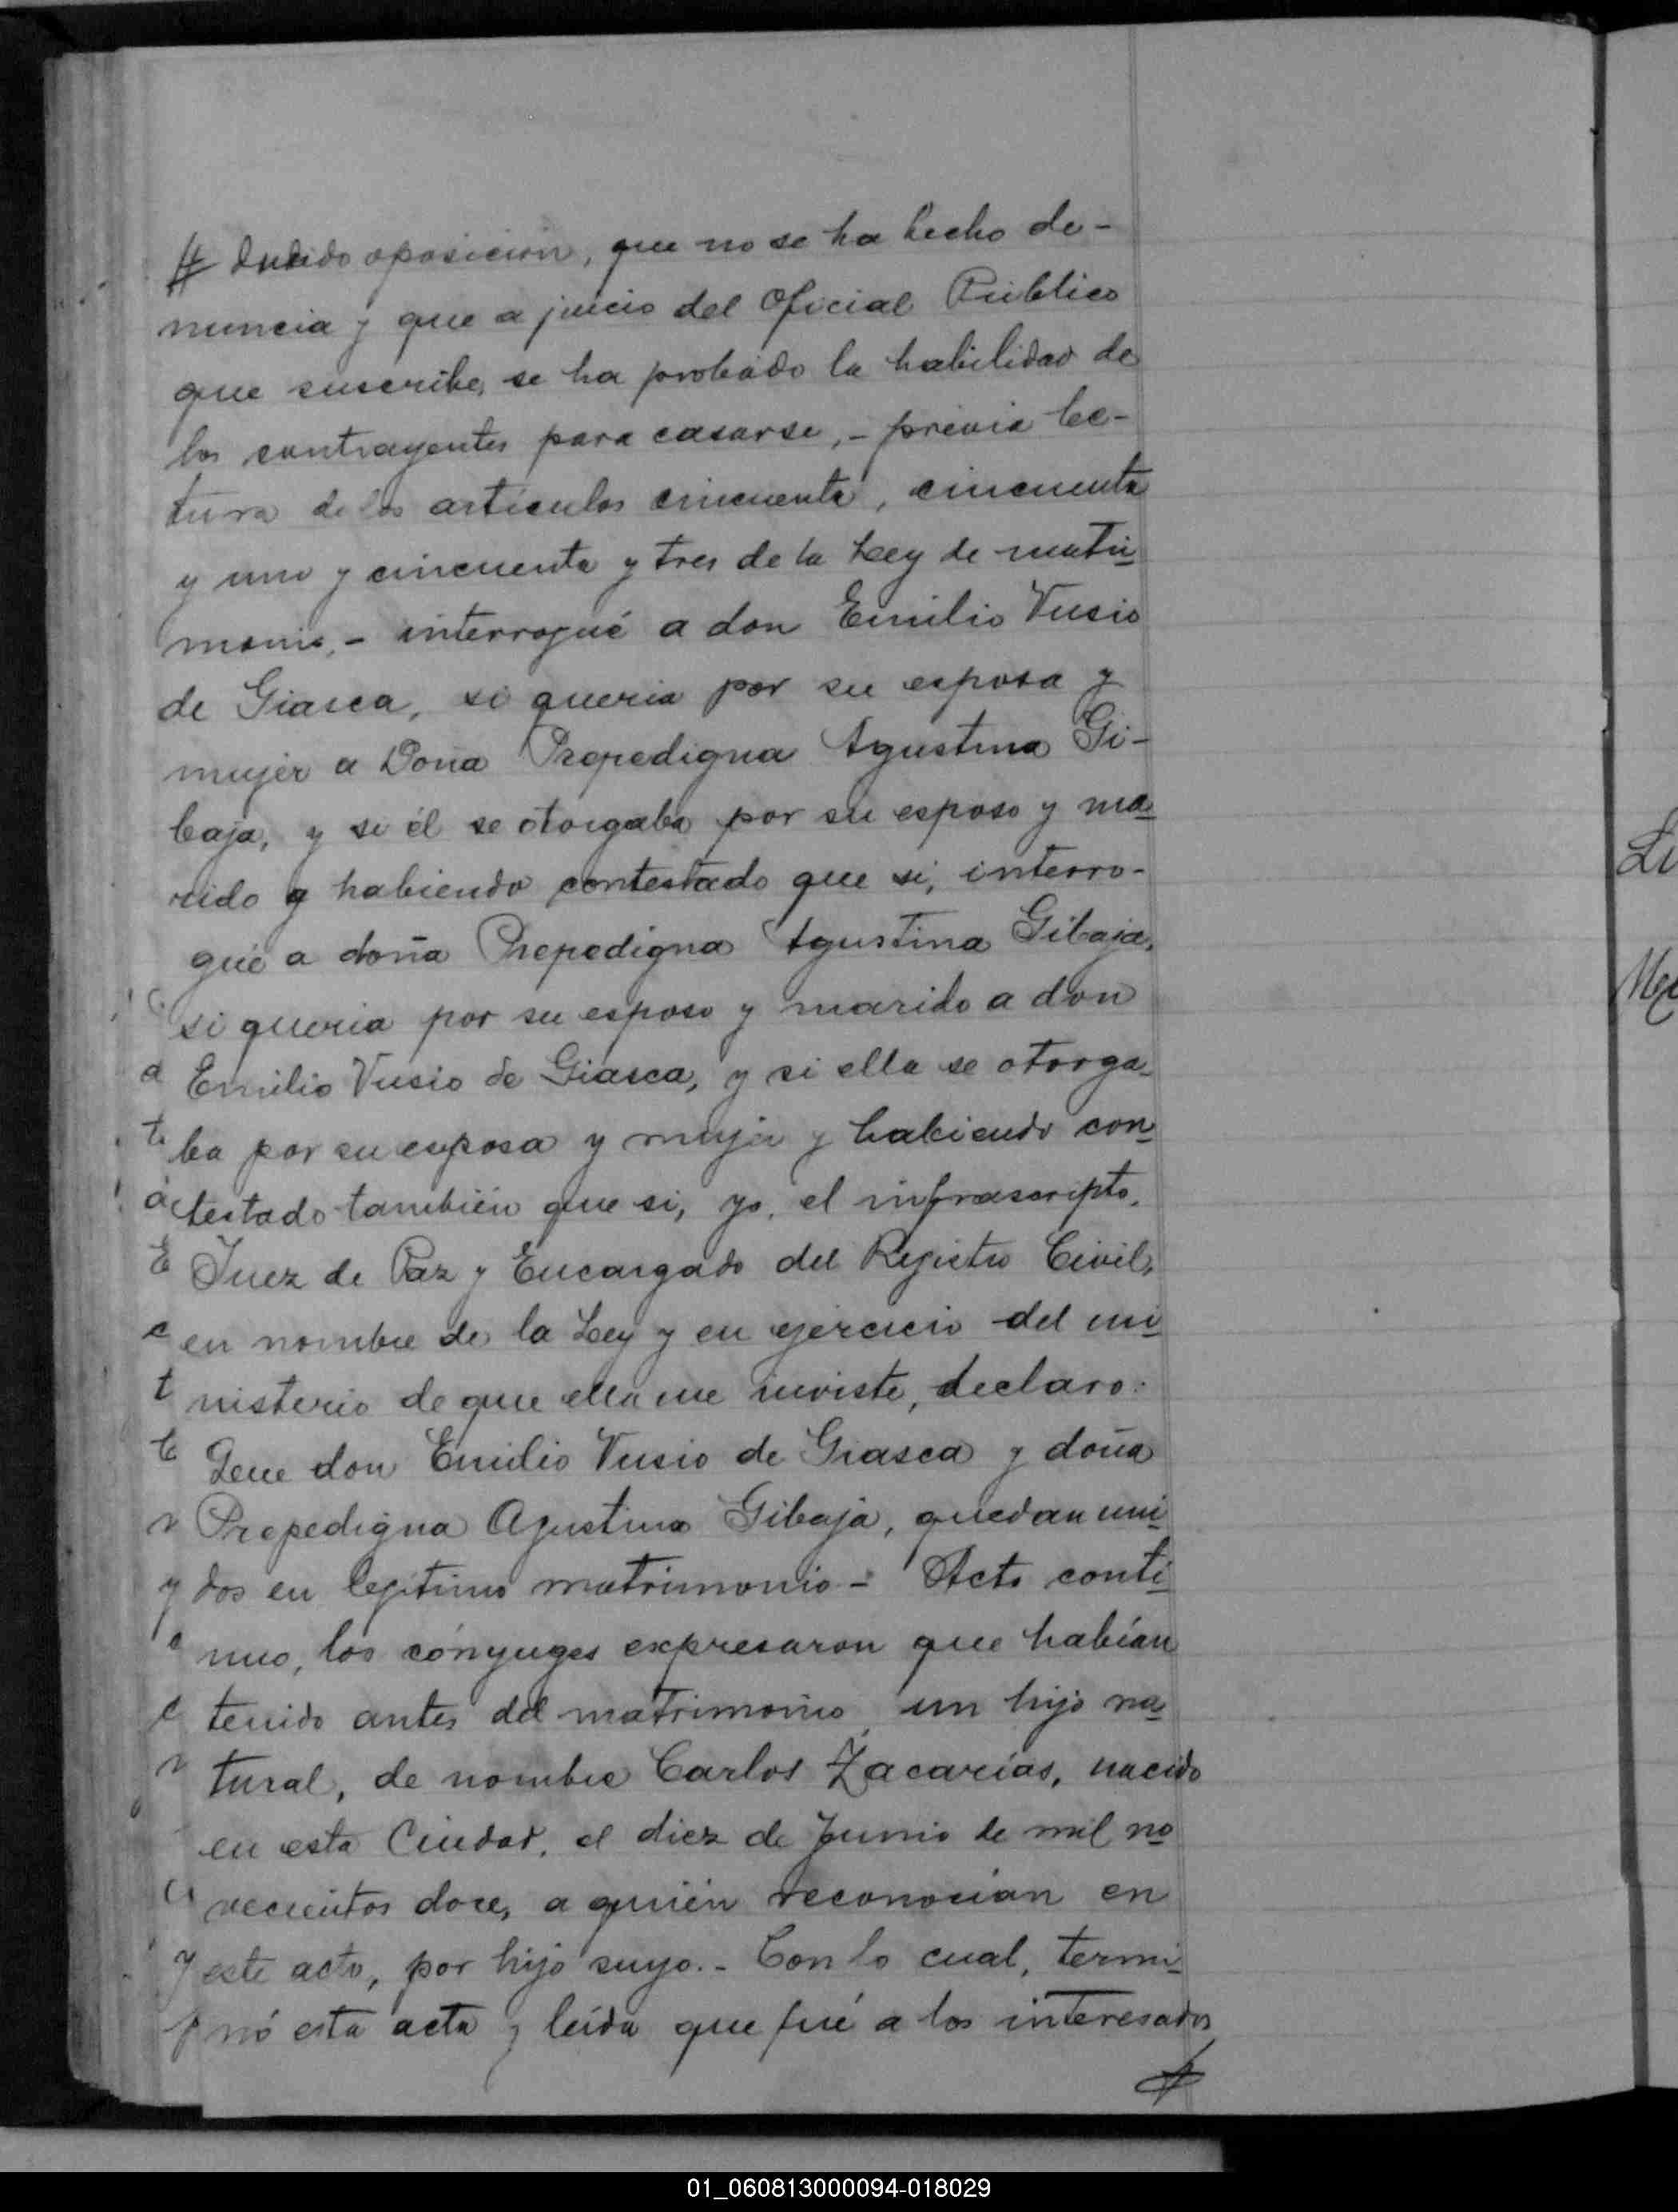 # ducido oposición, que no se ha hecho de-
nuncia y que a juicio del Oficial Público
que suscribe, se ha probado la habilidad de
los contrayentes para casarse, - previa lec-
tura de los artículos cincuenta, cincuenta
y uno y cincuenta y tres de la Ley de matri
monio, - interrogué a don Emilio Vusio
de Giasca, si queria por su esposa y
mujer a Doña Prepedigna Agustina Gi-
baja, y si él se otorgaba por su esposo y ma
rido y habiendo contestado que si, interro-
gué a doña Prepedigna Agustina Gibaja,
si queria por su esposo y marido a don
Emilio Vusio de Giasca, y si ella se otorga-
ba por su esposa y mujer y habiendo con
testado también que si, yo, el infrascripto,
Juez de Paz y Encargado del Registro Civil,
en nombre de la Ley y en ejercicio del mi
nisterio de que ella me inviste, declaro:
Que don Emilio Vusio de Giasca y doña
Prepedigna Agustina Gibaja, quedan uni
dos en legítimo matrimonio - Acto contí
nuo, los cónyuges expresaron que habían
tenido antes del matrimonio, un hijo na
tural, de nombre Carlos Zacarías, nacido
en esta Ciudad, el diez de Junio de mil no
vecientos doce, a quién reconocían en
este acto, por hijo suyo. - Con lo cual, termi
nó esta acta y leída que fué a los interesados
01_060813000094-018029